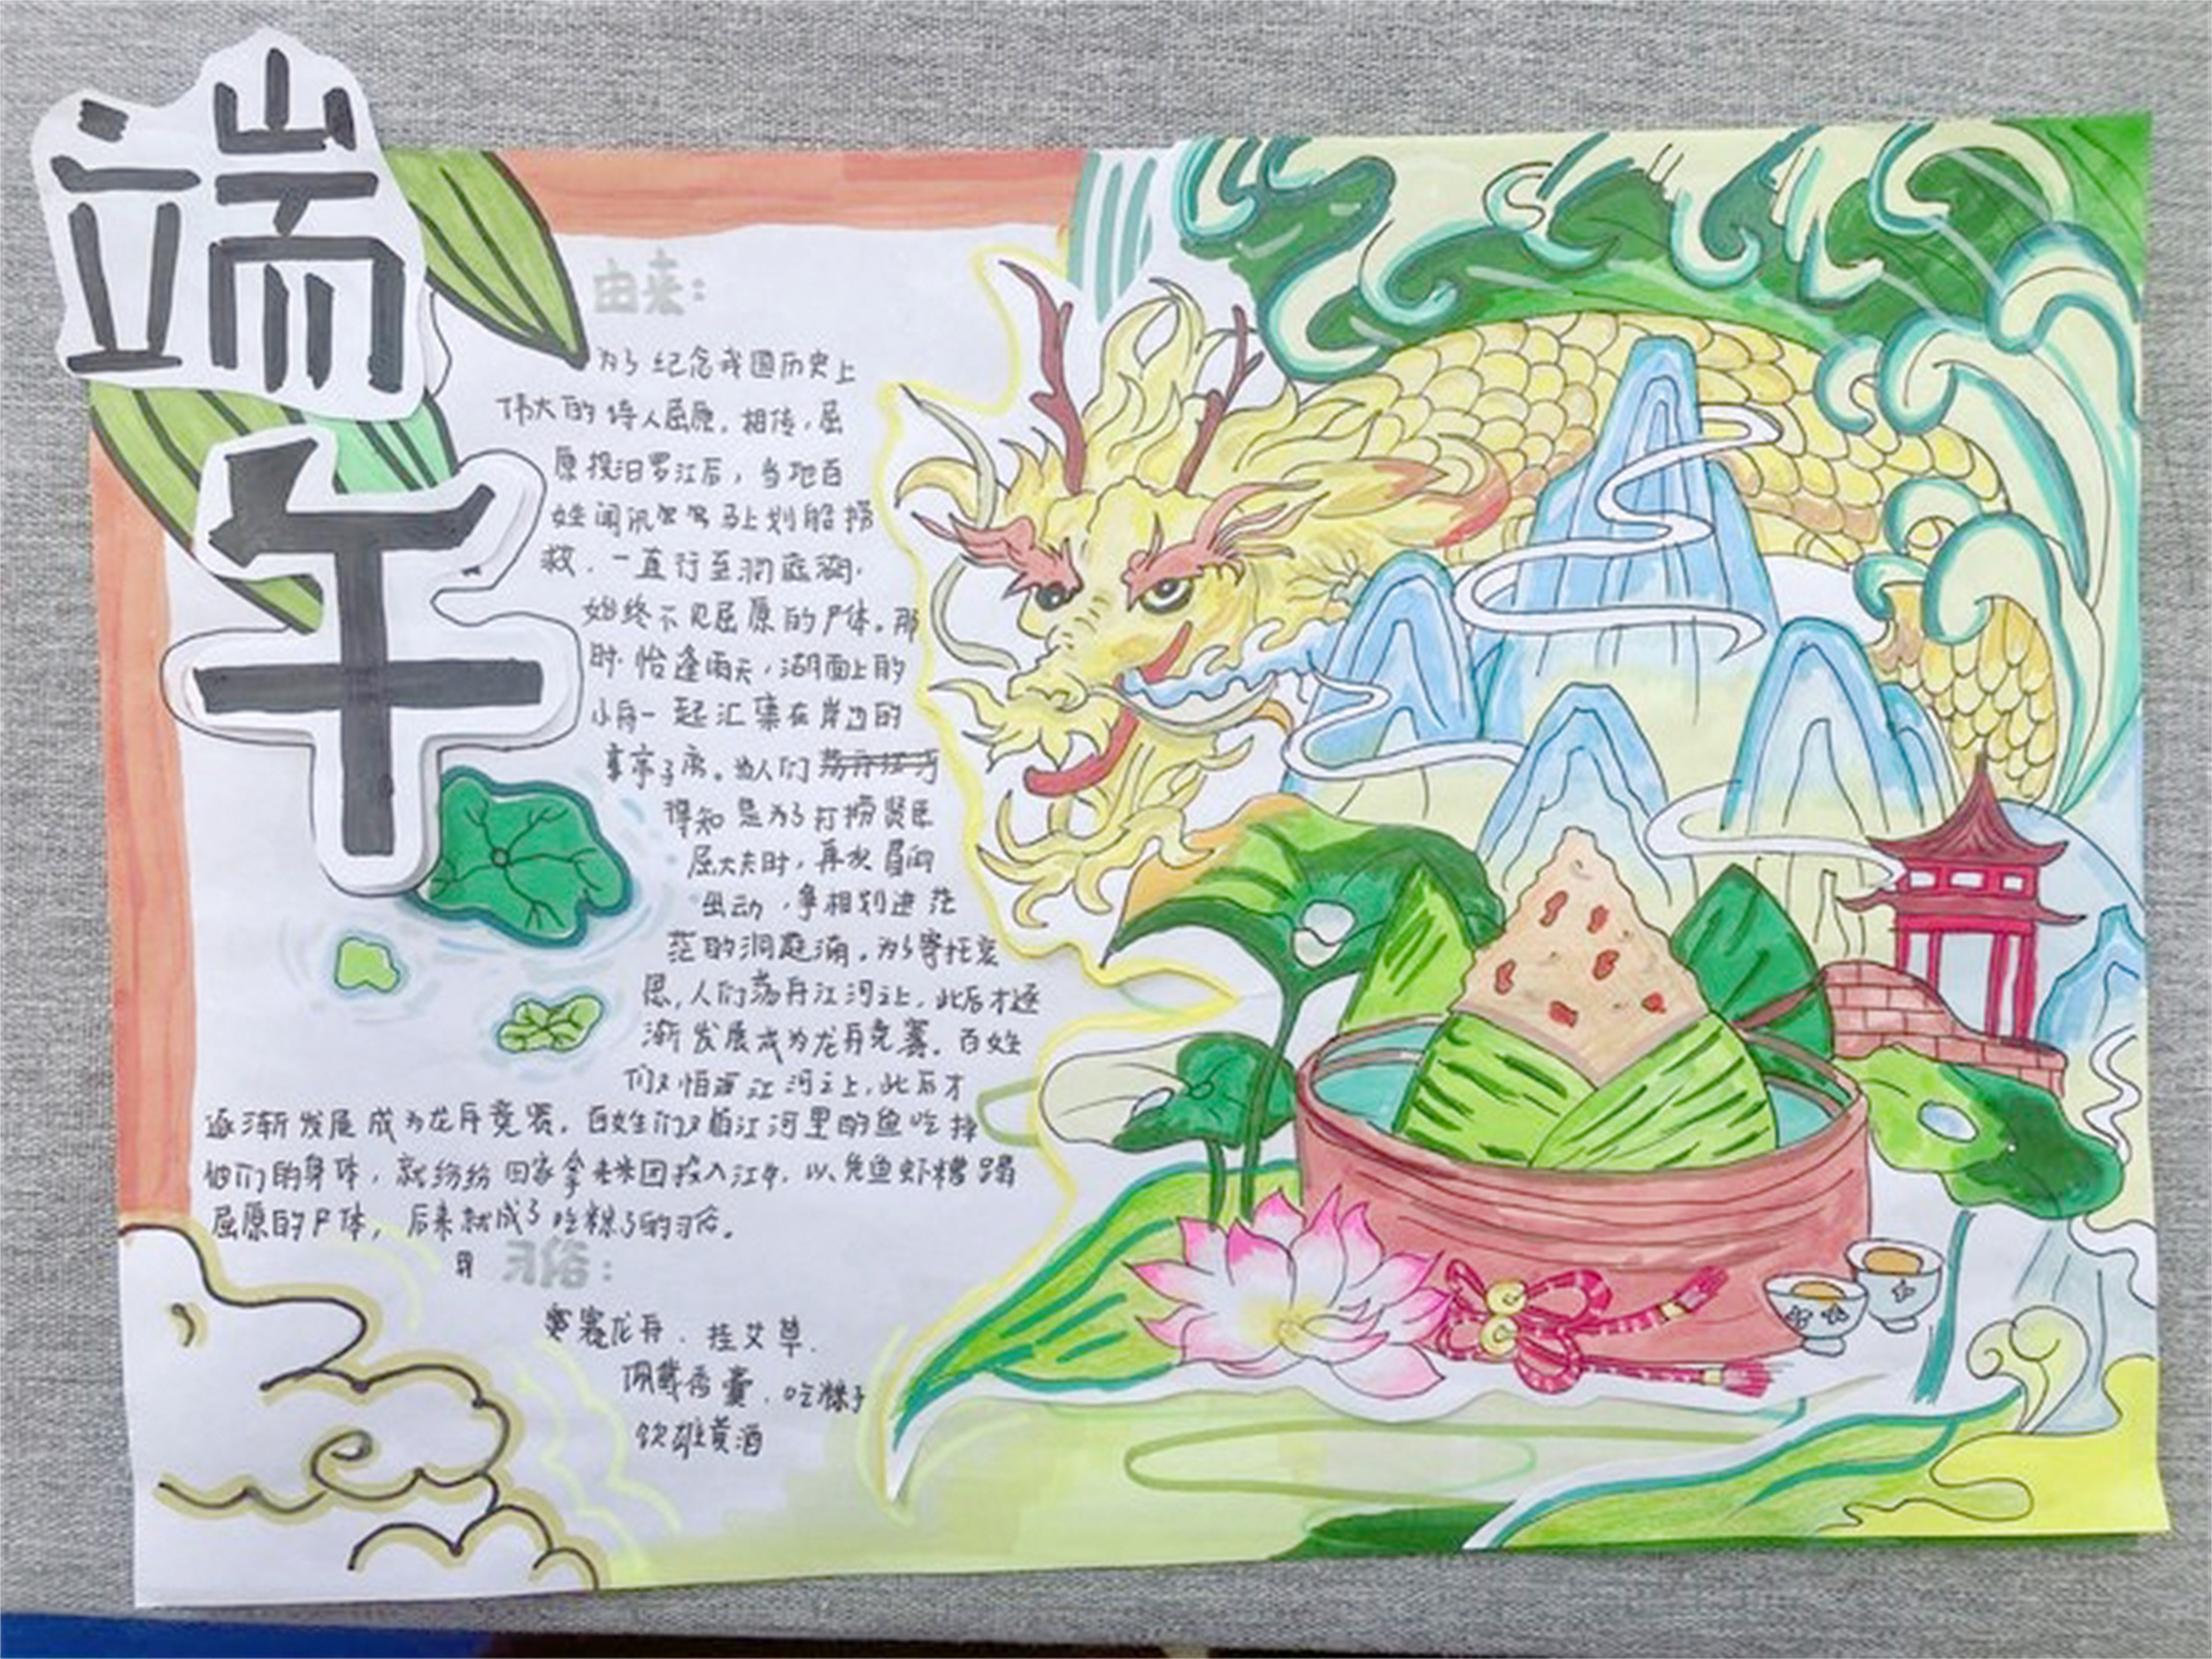 端午
由来：
为了纪念我国历史上
伟大的诗人屈原。相传，屈
原投汨罗江后，当地百
姓闻讯 马上划船捞
救，一直行至洞庭湖，
始终不见屈原的尸体。那
时，恰逢雨天，湖面上的
小舟一起汇集在岸边的
亭子旁。当人们
得知是为了打捞贤臣
屈大夫时，再次冒雨
出动，争相划进茫
茫的洞庭湖。为了寄托哀
思，人们荡舟江河之上，此后才逐
渐发展成为龙舟竞赛。百姓
们又怕 江河之上，此后才
逐渐发展成为龙舟竞赛。百姓们又怕江河里的鱼吃掉
他们的身体，就纷纷回家拿来米团投入江中，以免鱼虾糟蹋
屈原的尸体，后来就成了吃粽子的习俗。
习俗：
赛龙舟、挂艾草、
佩戴香囊、吃粽子
饮雄黄酒